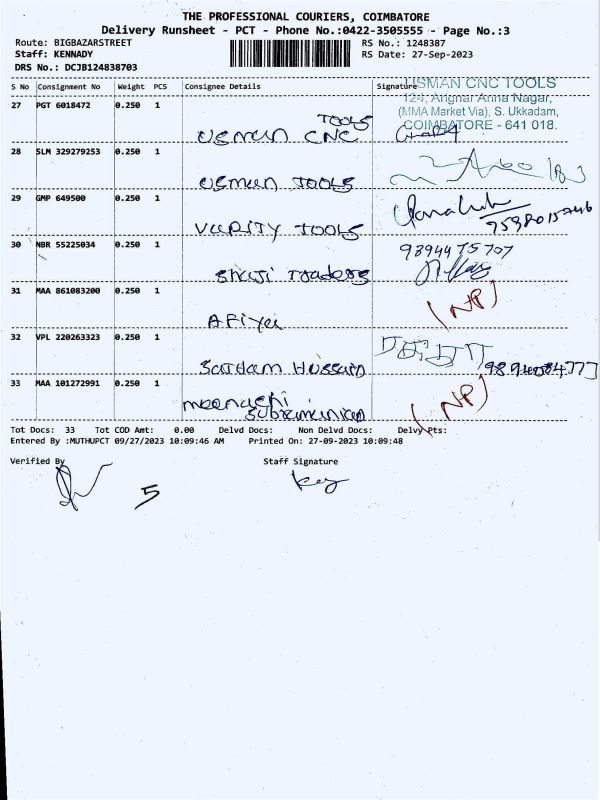 THE PROFESSIONAL COURIERS, COIMBATORE
Delivery Runsheet - PCT - Phone No.:0422-3505555 - Page No.:3
Route: BIGBAZARSTREET RS No.: 1248387
Staff: KENNADY RS Date: 27-Sep-2023
DRS No.: DCJB124838703
S No Consignment No Weight PCS Consignee Details Signature
USMAN CNC TOOLS
124, Arignar Anna Nagar,
(MMA Market Via), S. Ukkadam,
COIMBATORE - 641 018.
27 PGT 6018472 0.250 1
TOOLS
USMAN CNC
28 SLM 329279253 0.250 1
USMAN TOOLS
29 GMP 649500 0.250 1
VURSTY TOOLS
30 NBR 55225034 0.250 1 9894475707
Shaji Traders
31 MAA 861083200 0.250 1 (NP)
AFiya
32 VPL 220263323 0.250 1
Saddam Hussain
33 MAA 101272991 0.250 1 (NP)
meenachi
Subramanian
Tot Docs: 33 Tot COD Amt: 0.00 Delvd Docs: Non Delvd Docs: Delvy Pts:
Entered By :MUTHUPCT 09/27/2023 10:09:46 AM Printed On: 27-09-2023 10:09:48
Verified By Staff Signature
5